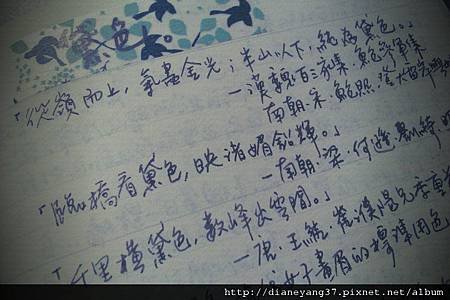 黛色。
「從嶺而上，氣盡金光；半山以下，純為黛色。」
—漢魏百三家集，鮑參軍集
南朝．宋．鮑照，登大雷岸與
「臨橋看黛色，映渚媚鉛輝。」
—南朝．梁．何遜，
「千里橫黛色，數峰出雲間。」
—唐．王維，崔濮陽兄季重
女子畫眉的標準用色
http://dianeyang37.pixnet.net/album